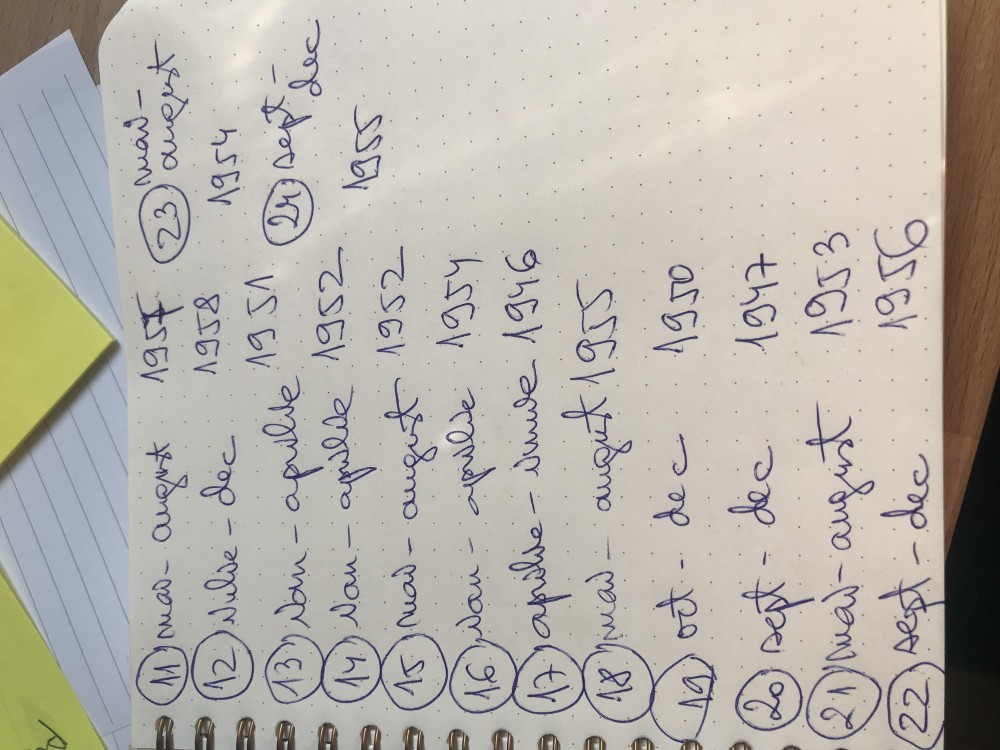 11 mai - august 1957
12 iulie - dec 1958
13 ian - aprilie 1951
14 ian - aprilie 1952
15 mai - august 1952
16 ian - aprilie 1954
17 aprilie - iunie 1946
18 mai - august 1955
19 oct - dec 1950
20 sept - dec 1947
21 mai - august 1953
22 sept - dec 1956
23 mai -
august
1954
24 sept -
dec
1955